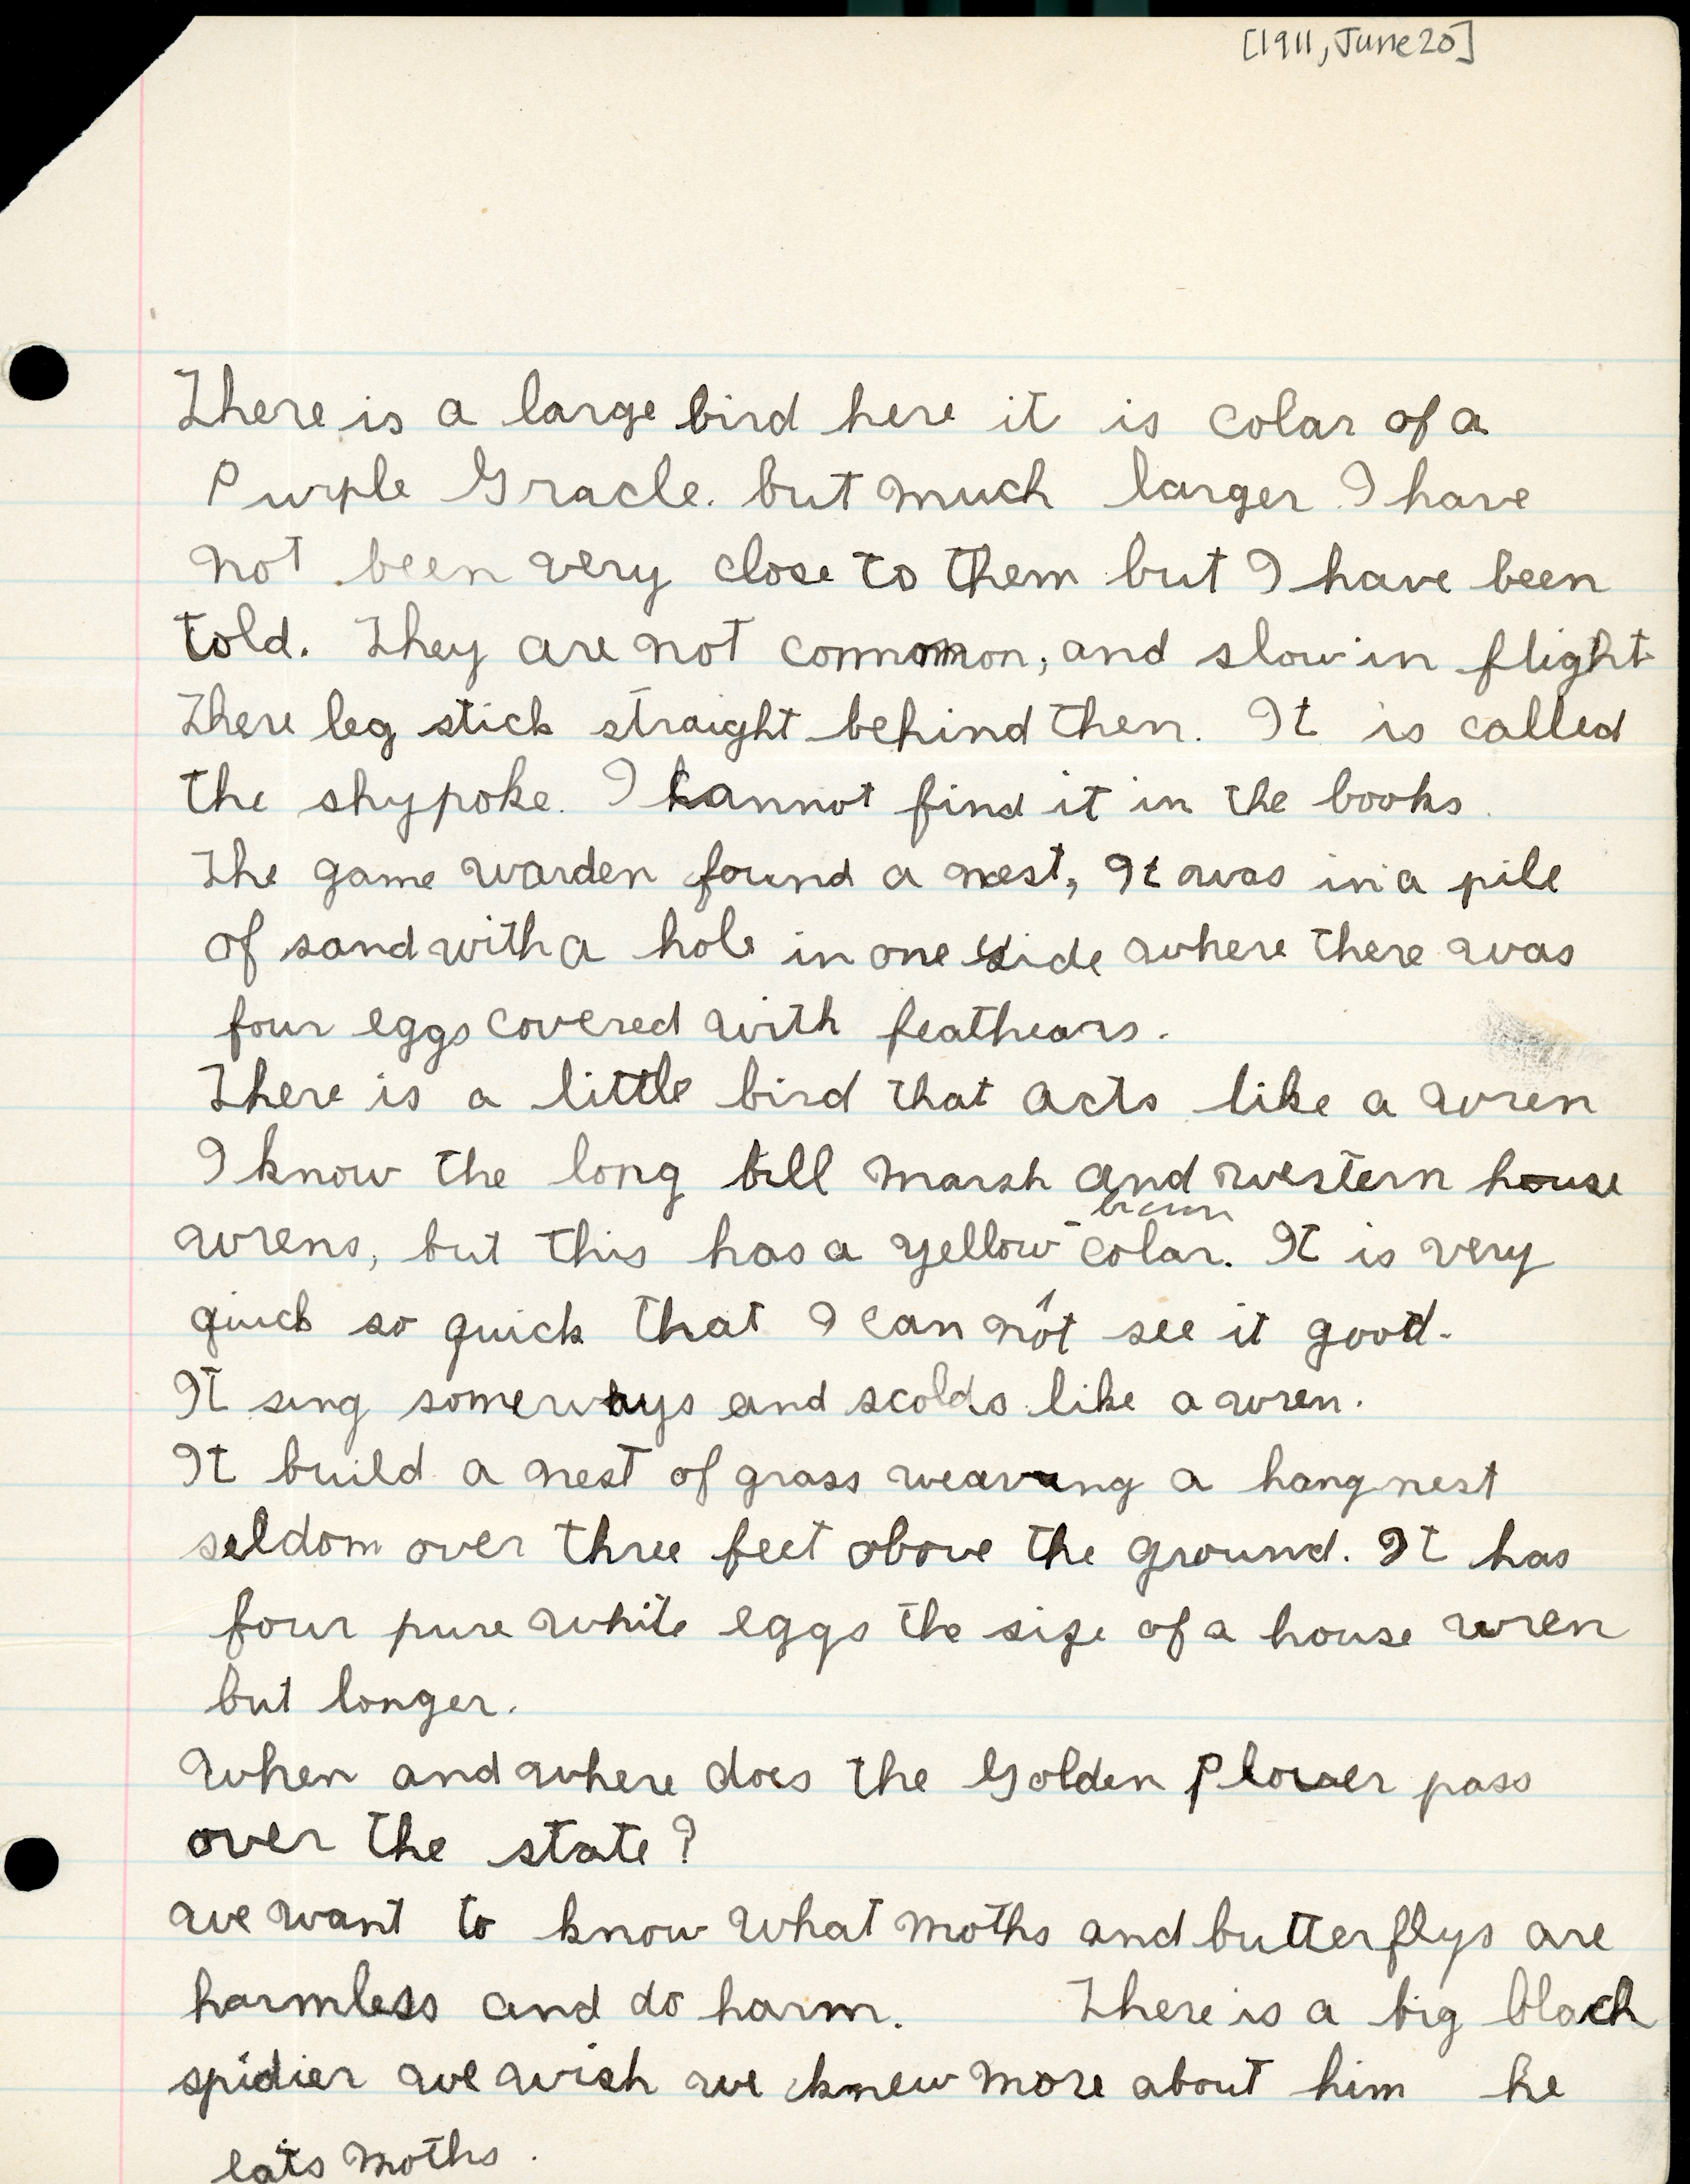 [1911, June 20]
There is a large bird here it is colar of a
Purple Gracle. but much larger I have
not been very close to them but I have been
told. They are not common, and slow in flight
There leg stick straight behind then. It is called
the shypoke. I cannot find it in the books.
The game warden found a nest, It was in a pile
of sand with a hole in one side where there was
four eggs covered with feathears.
There is a little bird that acts like a wren
I know the long bill marsh and western house
brown
wrens, but this has a yellow - colar. It is very
quick so quick that I can not see it good.
It sing someways and scolds like a wren.
It build a nest of grass weaving a hang nest
seldom over three feet above the ground. It has
four pure white eggs the size of a house wren
but longer.
When and where does the Golden Plover pass
over the state?
we want to know what moths and butterflys are
harmless and do harm. There is a big black
spidier we wish we knew more about him he
eats moths.